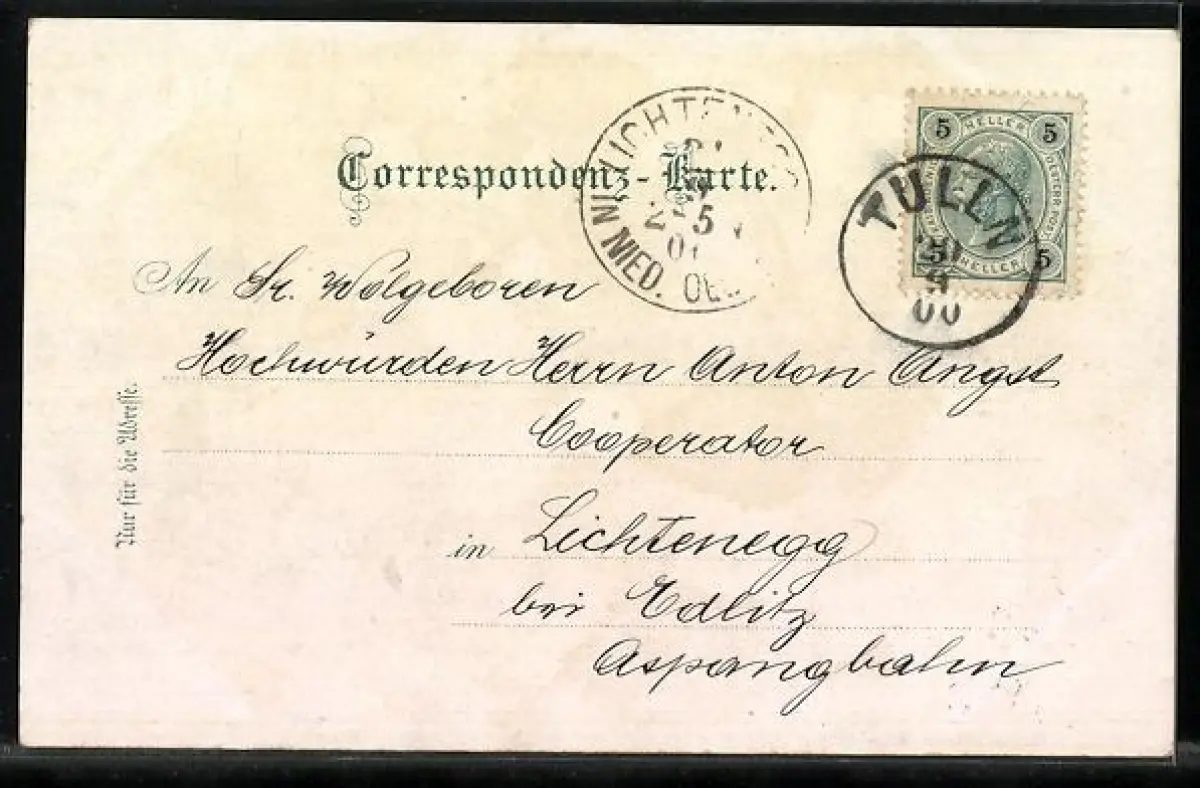 Correspondenz-Karte.
LICHTEN
IN NIED. OE
2 5
5 HELLER 5
5 HELLER 5
TULLN
00
An Sr. Wolgeboren
Hochwürden Herrn Anton Angst
Cooperator
in Lichtenegg
bei Edlitz
Aspangbahn
Nur für die Adresse.